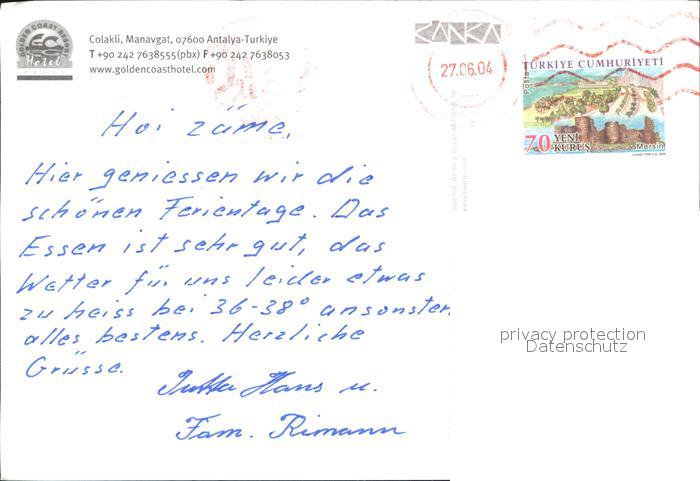 GOLDEN COAST RESORT
GC
Hotel
Colakli, Manavgat, 07600 Antalya-Turkiye
T +90 242 7638555(pbx) F +90 242 7638053
www.goldencoasthotel.com
27.06.04
Posta
TÜRKİYE CUMHURİYETİ
70 YENİ KURUŞ
Mersin
Hoi zäme,
Hier geniessen wir die
schönen Ferientage. Das
Essen ist sehr gut, das
Wetter für uns leider etwas
zu heiss bei 36-38° ansonsten
alles bestens. Herzliche
Grüsse.
Jutta Hans u.
Fam. Rimann
privacy protection
Datenschutz